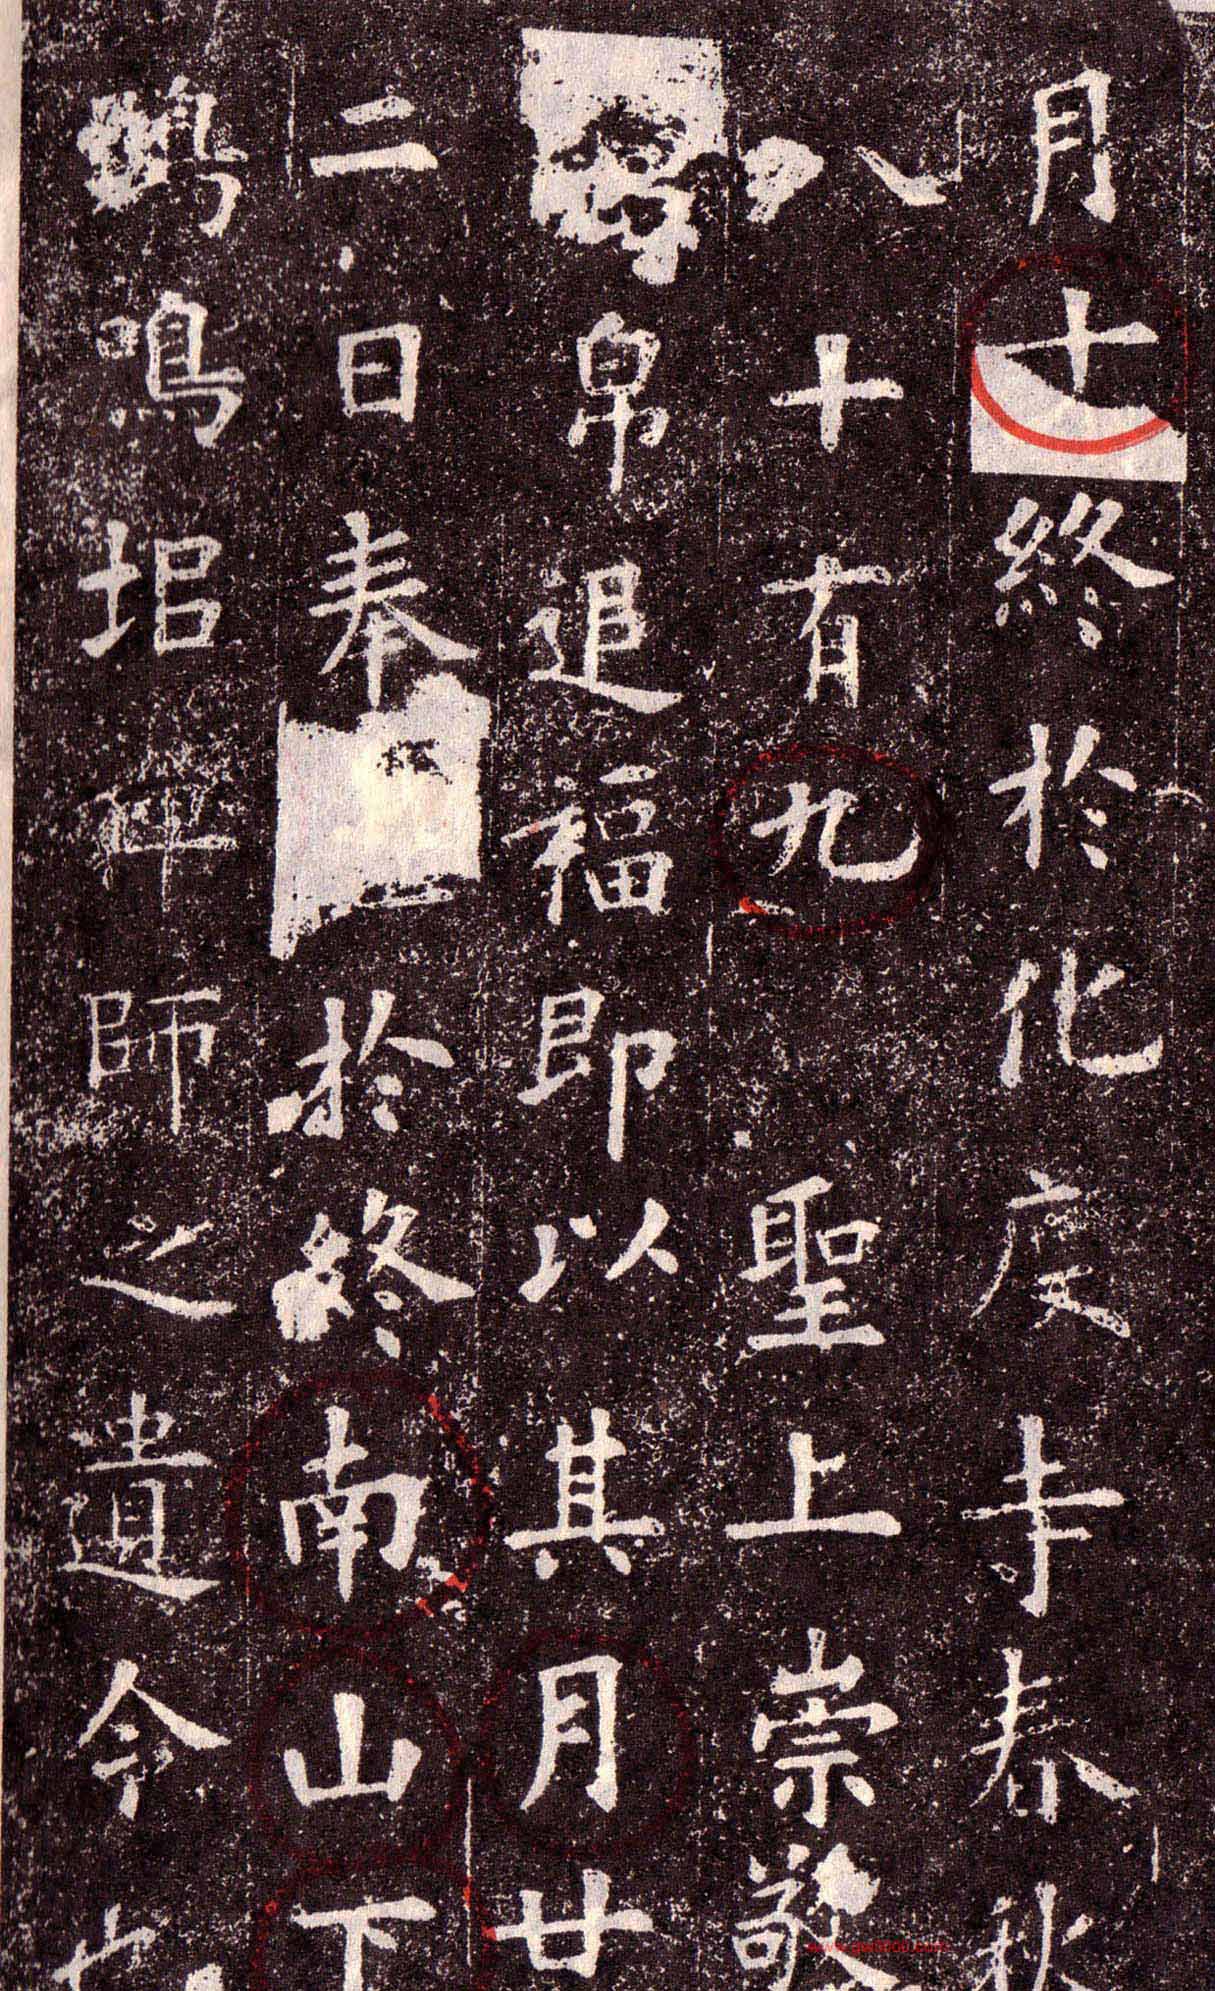 月十終於化度寺春秋
八十有九聖上崇敬
帛追福即以其月廿
二日奉於終南山下
鳴垖師之遺令也